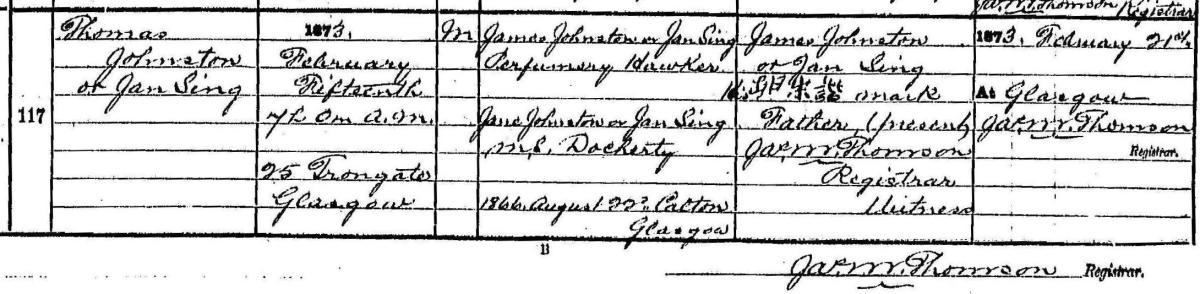 Jas. W. Thomson Registrar
117
Thomas
Johnston
or Jan Sing
1873.
February
Fifteenth
7h. 0m. A.M.
25 Trongate
Glasgow
M
James Johnston or Jan Sing
Perfumery Hawker
Jane Johnston or Jan Sing
M.S. Docherty
1866 August 22d. Calton
Glasgow
James Johnston
or Jan Sing
his mark
Father (present)
Jas. W. Thomson
Registrar
Witness
1873. February 21st.
At Glasgow
Jas. W. Thomson
Registrar.
B
Jas. W. Thomson Registrar.